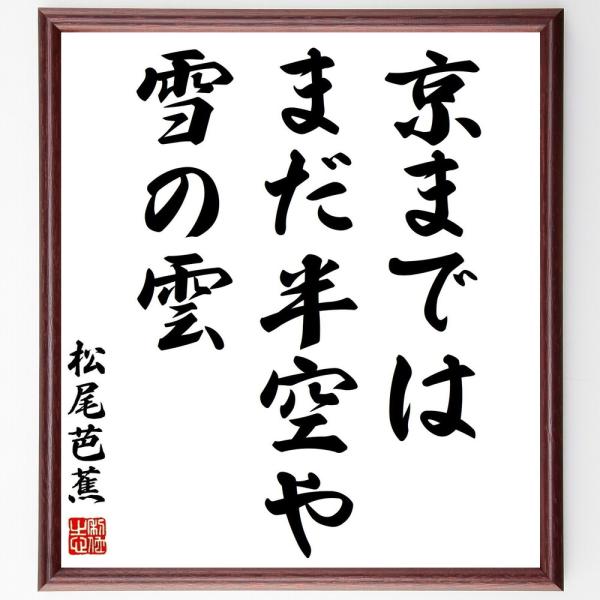 京までは
まだ半空や
雪の雲
松尾芭蕉